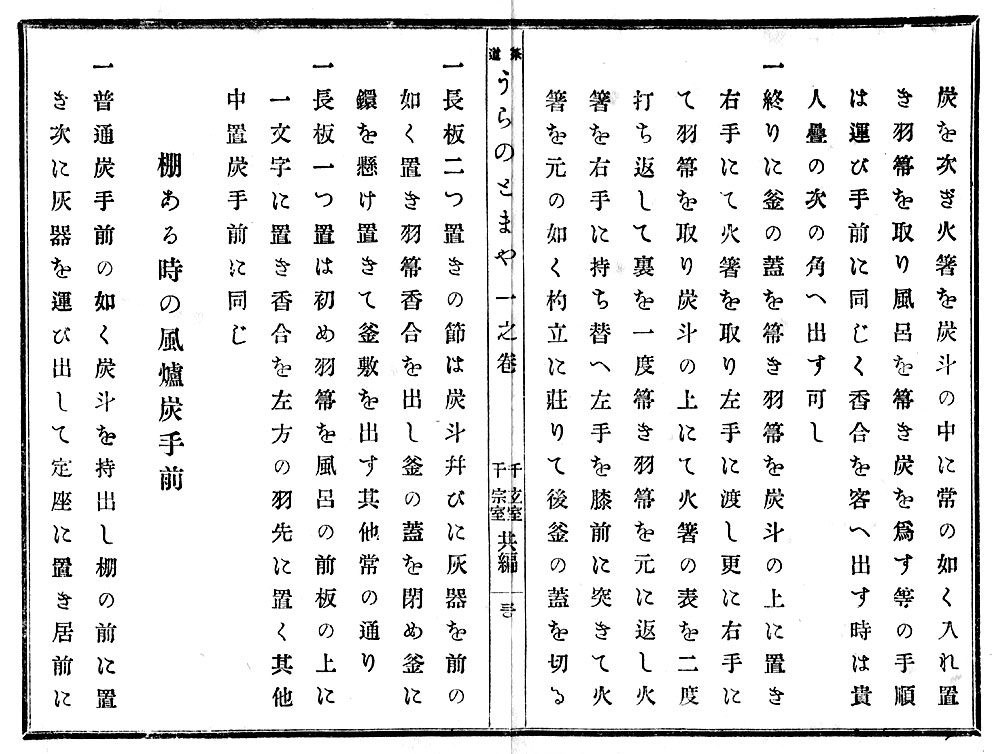 炭を次ぎ火箸を炭斗の中に常の如く入れ置
き羽箒を取り風呂を箒き炭を爲す等の手順
は運び手前に同じく香合を客へ出す時は貴
人疊の次の角へ出す可し
一終りに釜の蓋を箒き羽箒を炭斗の上に置き
右手にて火箸を取り左手に渡し更に右手に
て羽箒を取り炭斗の上にて火箸の表を二度
打ち返して裏を一度箒き羽箒を元に返し火
箸を右手に持ち替へ左手を膝前に突きて火
箸を元の如く杓立に莊りて後釜の蓋を切る
茶道うらのとまや 一之卷 千玄室 千宗室 共編
一長板二つ置きの節は炭斗幷びに灰器を前の
如く置き羽箒香合を出し釜の蓋を閉め釜に
鐶を懸け置きて釜敷を出す其他常の通り
一長板一つ置は初め羽箒を風呂の前板の上に
一文字に置き香合を左方の羽先に置く其他
中置炭手前に同じ
棚ある時の風爐炭手前
一普通炭手前の如く炭斗を持出し棚の前に置
き次に灰器を運び出して定座に置き居前に